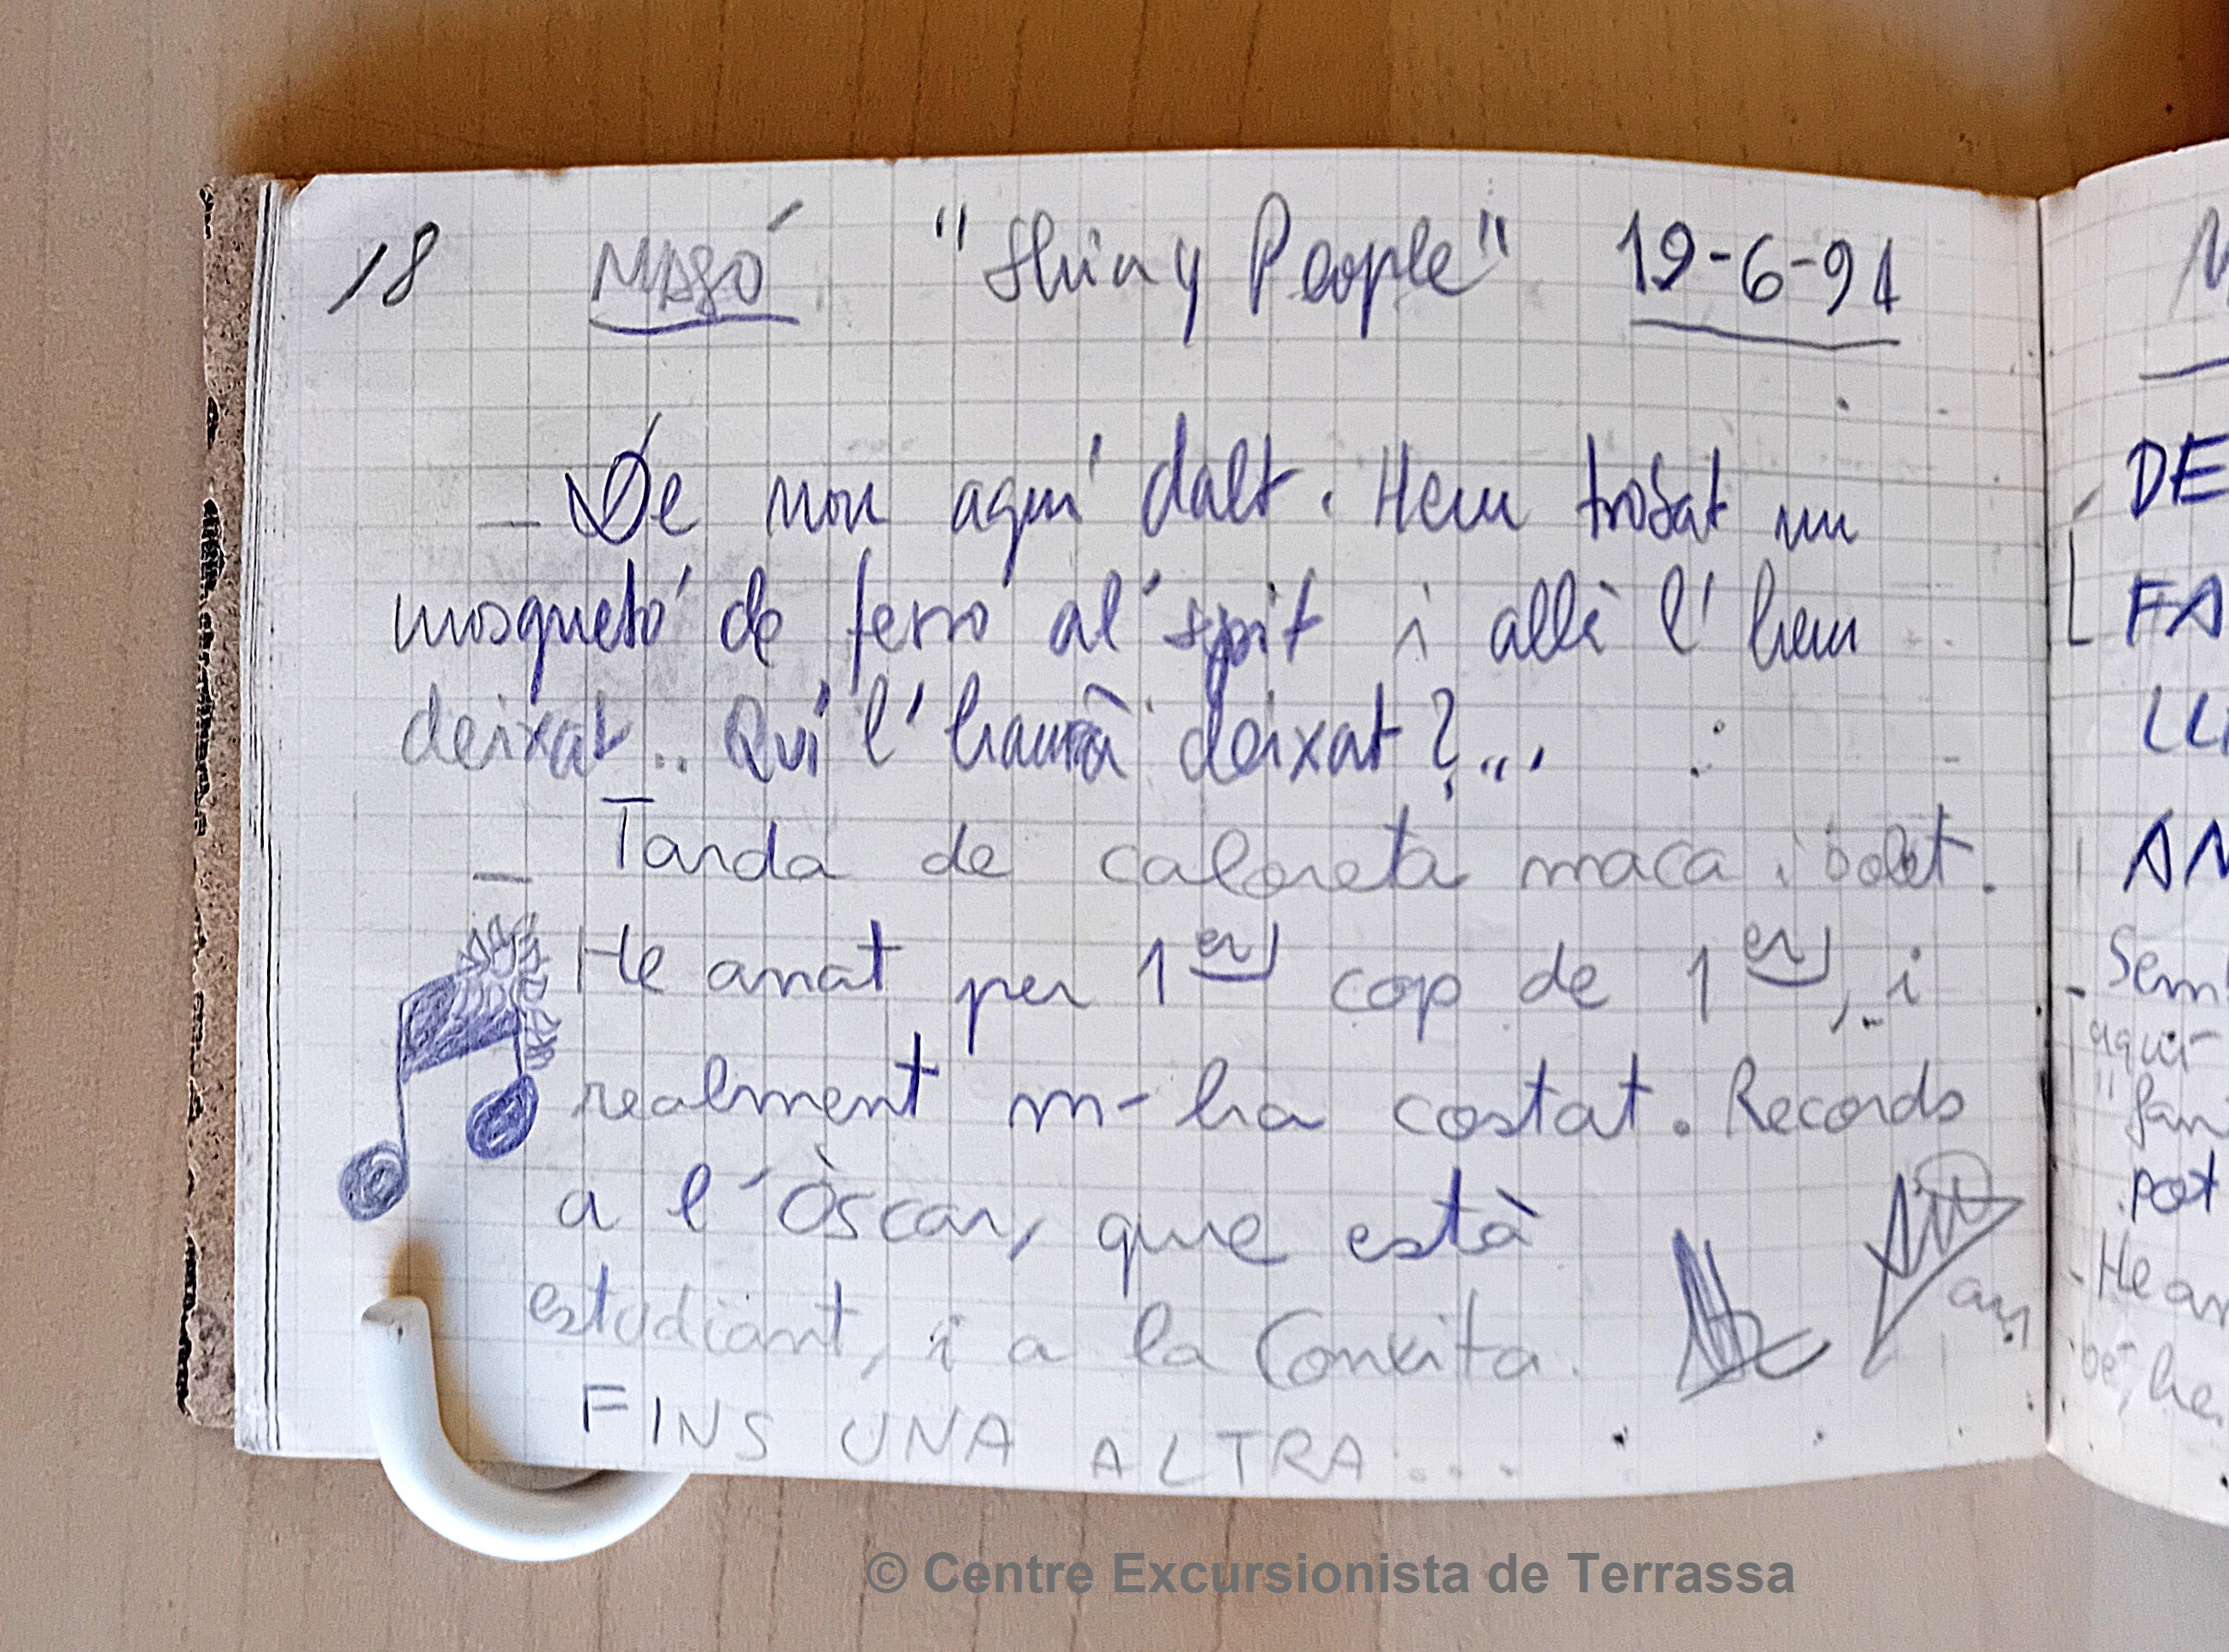 18 MASÓ "Shiny People" 19-6-91
- De nou aquí dalt. Hem trobat un
mosquetó de ferro al spit i allà l'hem
deixat... Qui l'haurà deixat?...
- Tarda de caloreta maca i
He anat per 1er cop de 1er, i
realment m-ha costat. Records
a l'Òscar, que està
estudiant, i a la Conxita.
FINS UNA ALTRA...
DE
FA
AN
Sem
- He an
bé, he
© Centre Excursionista de Terrassa